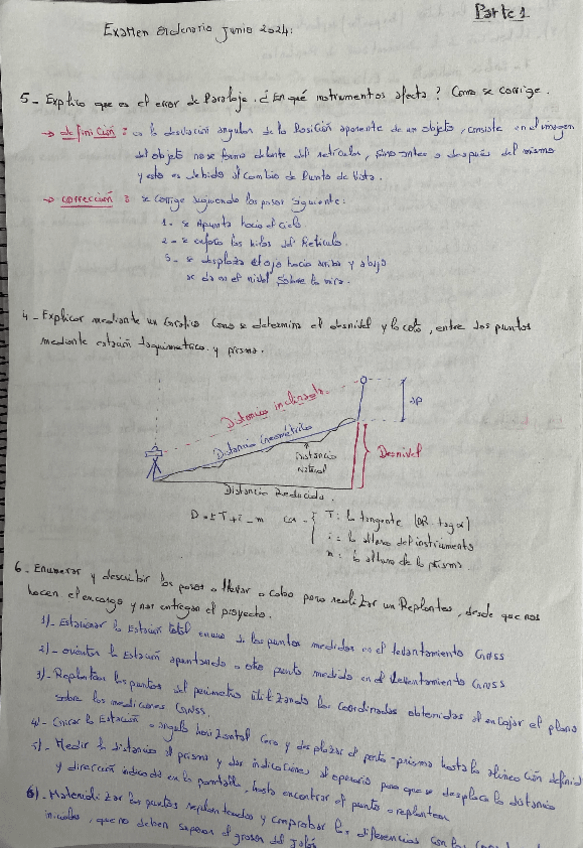 Parte 1
Examen Ordenario Junio 2024:
5_ Explico que es el error de Paralaje. ¿ En qué instrumentos afecta? Como se corrige.
→ definición : es la desviación angular de la Posición aparente de un objeto, consiste en el imagen
del objeto no se forma delante del reticulo, sino antes o después del mismo
y esto es debido al Cambio de Punto de Vista.
→ corrección : se corrige siguiendo los pasos siguiente:
1_ se apunta hacia el cielo
2_ se los hilos del Reticulo.
3_ se desplaza el ojo hacia arriba y abajo
se da en el nivel sobre la mira.
4_ Explicar mediante un Grafico Como se determina el desnivel y la cota, entre dos puntos
mediante estación taquimetrica y prisma.
Distancia inclinada.
Distancia Geométrica
Distancia
Natural
Desnivel
Distancia Reducida.
D = ± T + i _ m
T: la tangente (DR. tag α)
i = la altura del instrumento
m: la altura de la prisma.
6_ Enumerar y describir los pasos a llevar a cabo para realizar un Replanteo, desde que nos
hacen el encargo y nos entregan el proyecto.
1)- Estacionar la Estación total en uno de los puntos medidos en el levantamiento GNSS
2)- orientar la Estación apuntando a otro punto medido en el Levantamiento GNSS
3)- Replantear los puntos del perimetro utilizando las coordenadas obtenidas al encajar el plano
sobre las mediciones GNSS.
4)- Girar la Estación a angulo horizontal Cero y desplazar el porta-prisma hasta la alineación
5)- Medir la distancia al prisma y dar indicaciones al operario para que se desplace la distancia
y dirección indicada en la pantalla, hasta encontrar el punto a replantear
6)- Materializar los puntos replanteados y comprobar las diferencias con las
iniciales, que no deben superar el grosor del